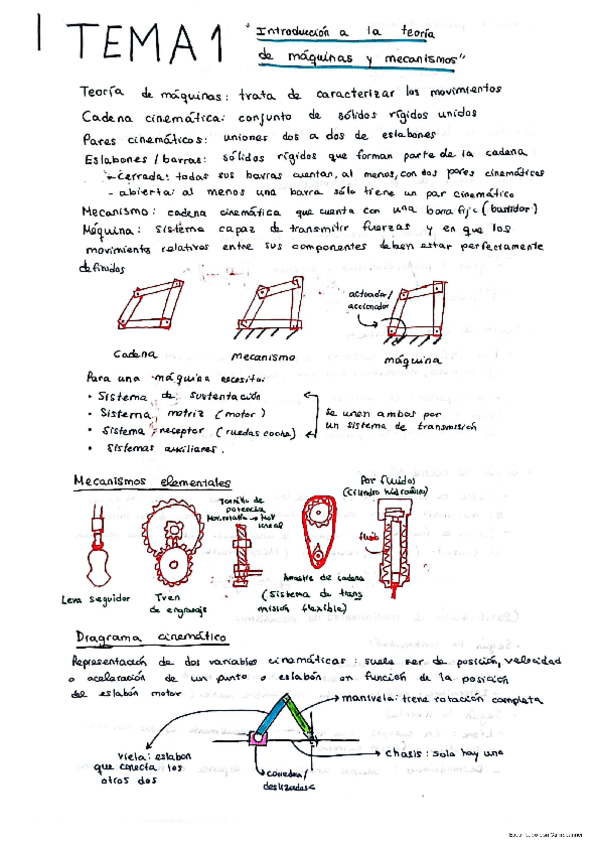 TEMA 1 "Introducción a la teoría
de máquinas y mecanismos"
Teoría de máquinas: trata de caracterizar los movimientos
Cadena cinemática: conjunto de sólidos rígidos unidos
Pares cinemáticos: uniones dos a dos de eslabones
Eslabones / barras: sólidos rígidos que forman parte de la cadena
- cerrada: todas sus barras cuentan, al menos, con dos pares cinemáticos
- abierta: al menos una barra sólo tiene un par cinemático
Mecanismo: cadena cinemática que cuenta con una barra fija (bastidor)
Máquina: sistema capaz de transmitir fuerzas y en que los
movimientos relativos entre sus componentes deben estar perfectamente
definidos
actuador/
accionador
Cadena
mecanismo
máquina
Para una máquina necesito:
• Sistema de sustentación
• Sistema motriz (motor)
• Sistema receptor (ruedas coche)
• Sistemas auxiliares.
se unen ambos por
un sistema de transmisión
Mecanismos elementales
Tornillo de
potencia
Mov.rotativo → Mov
lineal
Por fluidos
(cilindro hidráulico)
fluido
Leva seguidor
Tren
de engranaje
Arrastre de cadena
(Sistema de trans
misión flexible)
Diagrama cinemático
Representación de dos variables cinemáticas: suele ser de posición, velocidad
o aceleración de un punto o eslabón en función de la posición
del eslabón motor
manivela: tiene rotación completa
viela: eslabon
que conecta los
otros dos
corredera/
deslizadera
chasis: solo hay uno